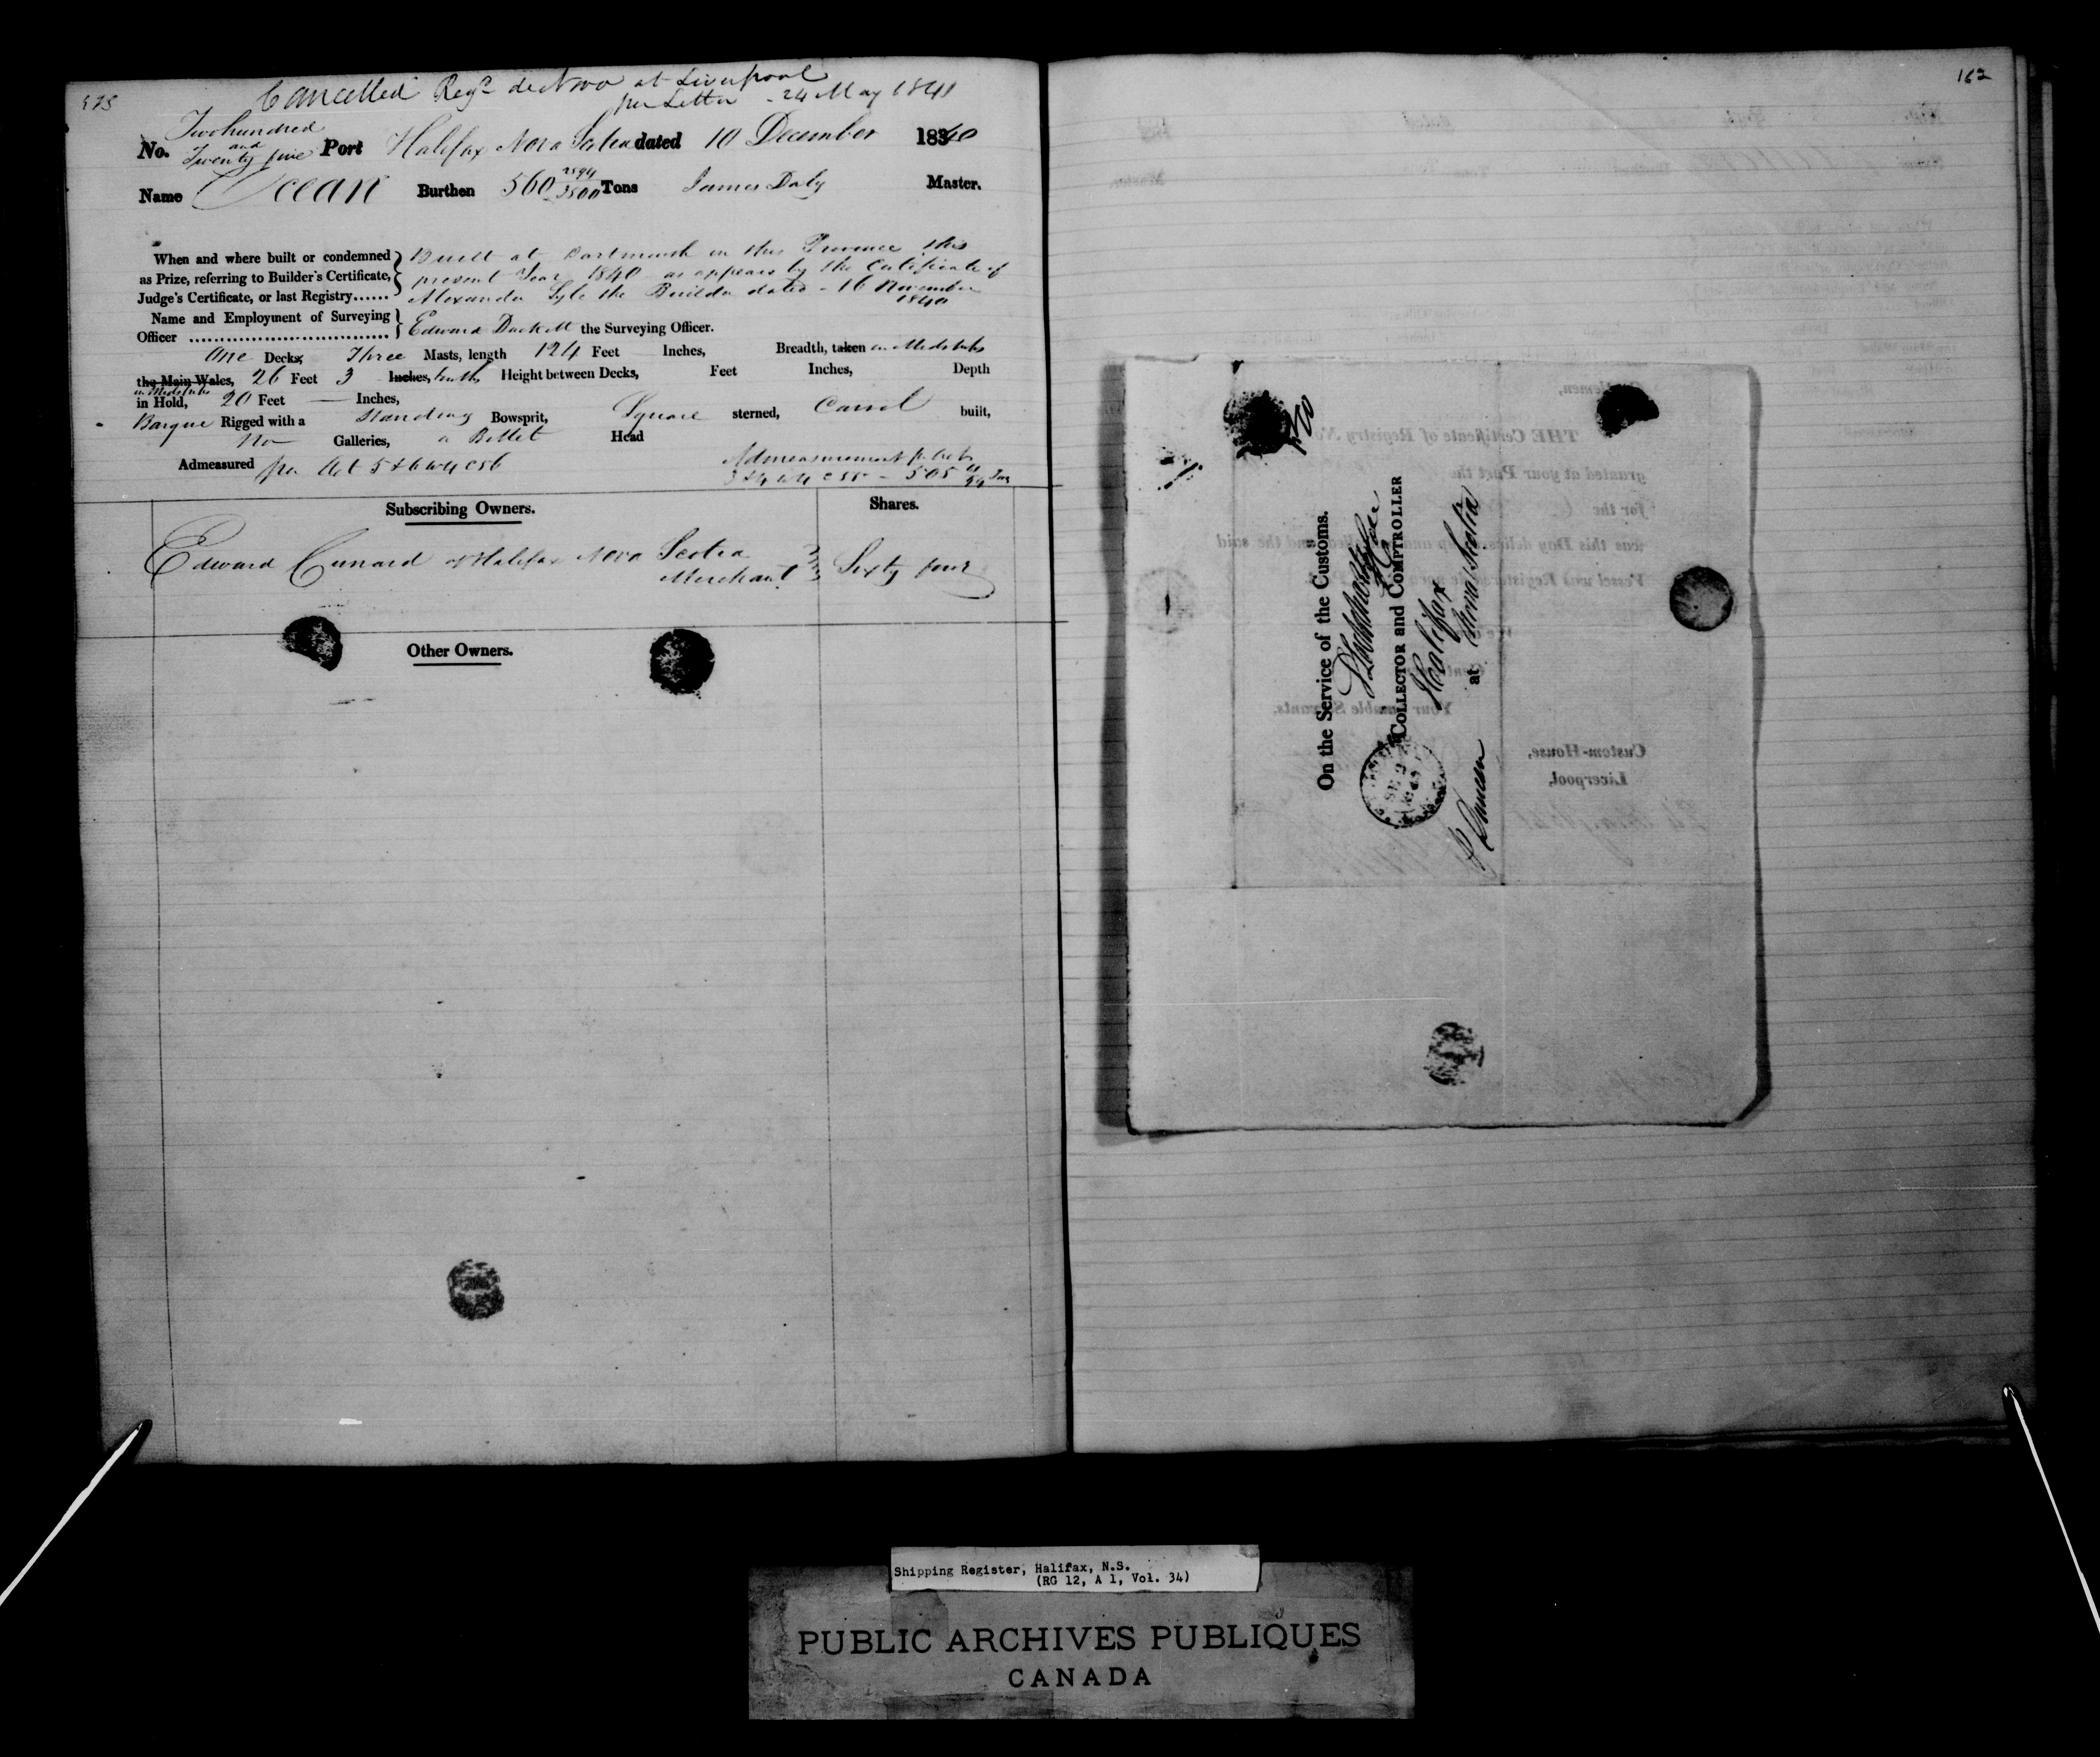 Cancelled Regd de Novo at Liverpool
per Letter - 24 May 1841
No. Two hundred and Twenty five Port Halifax Nova Scotia dated 10 December 1840
Name Ocean Burthen 560 2394/3500 Tons James Daly Master.
When and where built or condemned as Prize, referring to Builder's Certificate, Judge's Certificate, or last Registry......
Built at Dartmouth in this Province this
present Year 1840 as appears by the Certificate of
Alexander Lyle the Builder dated - 16 November
1840
Name and Employment of Surveying Officer ..................................
Edward Duckett the Surveying Officer.
One Decks, Three Masts, length 124 Feet Inches, Breadth, taken in Midships
the Main Wales, 26 Feet 3 Inches, tenths Height between Decks, Feet Inches, Depth
in Midships
in Hold, 20 Feet — Inches,
Barque Rigged with a Standing Bowsprit, Square sterned, Carvel built,
No Galleries, a Billet Head
Admeasured per Act 5 & 6 W 4 C 56
Admeasurement pr Act
3 & 4 W 4 C 55 - 505 /94 Tons
Subscribing Owners. Shares.
Edward Cunard of Halifax Nova Scotia
Merchant Sixty four
Other Owners.
162
On the Service of the Customs.
COLLECTOR and COMPTROLLER
Halifax
at Nova Scotia
Duncan
THE Certificate of Registry No.
granted at your Port the
for the
was this Day
Vessel
Custom-House,
Liverpool,
Shipping Register, Halifax, N.S.
(RG 12, A 1, Vol. 34)
PUBLIC ARCHIVES PUBLIQUES
CANADA